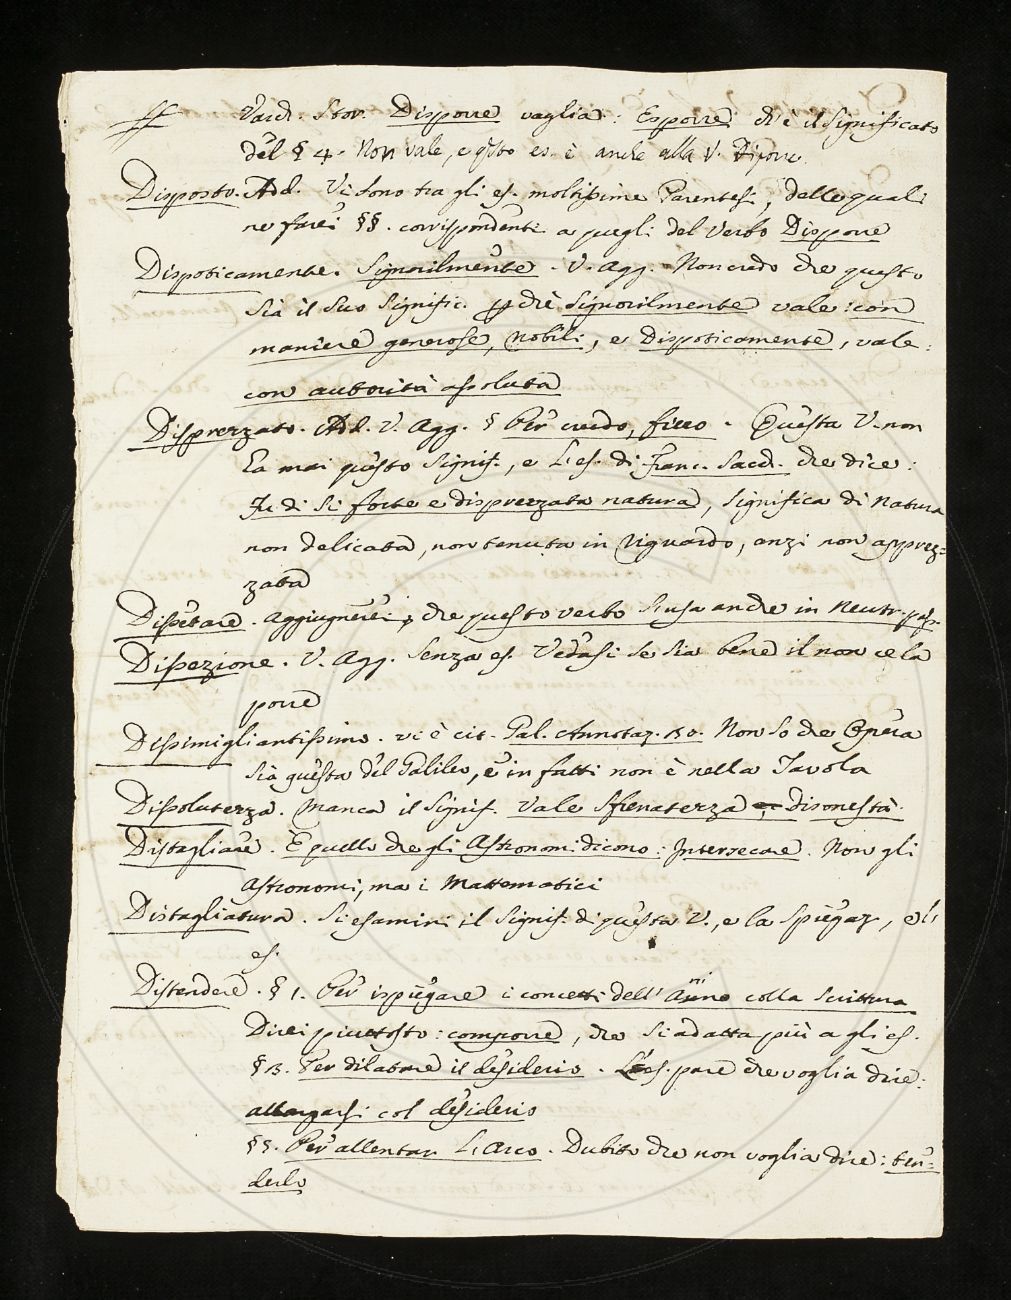 Varch. Stor. Disporre vaglia: Esporre ch'è il significato
del § 4. Non vale, e qsto es. è anche alla V. Disporre.
Disposto. Add. Vi sono tra gli es. moltissime Parentesi, delle quali
ne farei §§. corrispondenti a quegli del Verbo Disporre
Dispoticamente. Signorilmente. V. Agg. Non credo che questo
sia il suo signific. pchè signorilmente vale: con
maniere generose, nobili, e Dispoticamente, vale:
con autorità assoluta
Disprezzato. Add. V. Agg. § Per crudo, fiero. Questa V. non
ha mai questo signif., e l'es. di Franc. Sacch. che dice:
Fu di sì forte e disprezzata natura, significa di natura
non delicata, non tenuta in riguardo, anzi non apprez=
zata
Dissetare. Aggiugnerei, che questo verbo si usa anche in Neutr. pass.
Dissezione. V. Agg. senza es. Vedasi se sia bene il non ce la
porre
Dissimigliantissimo. vi è cit. Gal. Annotaz. 150. Non so che Opera
sia questa del Galileo, e in fatti non è nella Tavola
Dissolutezza. Manca il signif. Vale sfrenatezza, disonestà.
Distagliare. È quello che gli Astronomi dicono: Intersecare. Non gli
Astronomi, ma i Mattematici
Distagliatura. Si esamini il signif. di questa V., e la spiegaz., e l'
es.
Distendere. § 1. Per ispiegare i concetti dell' Animo colla scrittura
Direi piuttosto: comporre, che si adatta più agli es.
§ 13. Per dilatare il desiderio. L'es. pare che voglia dire:
allargarsi col desiderio
§ 5. Per allentar l'Arco. Dubito che non voglia dire: ten=
derlo